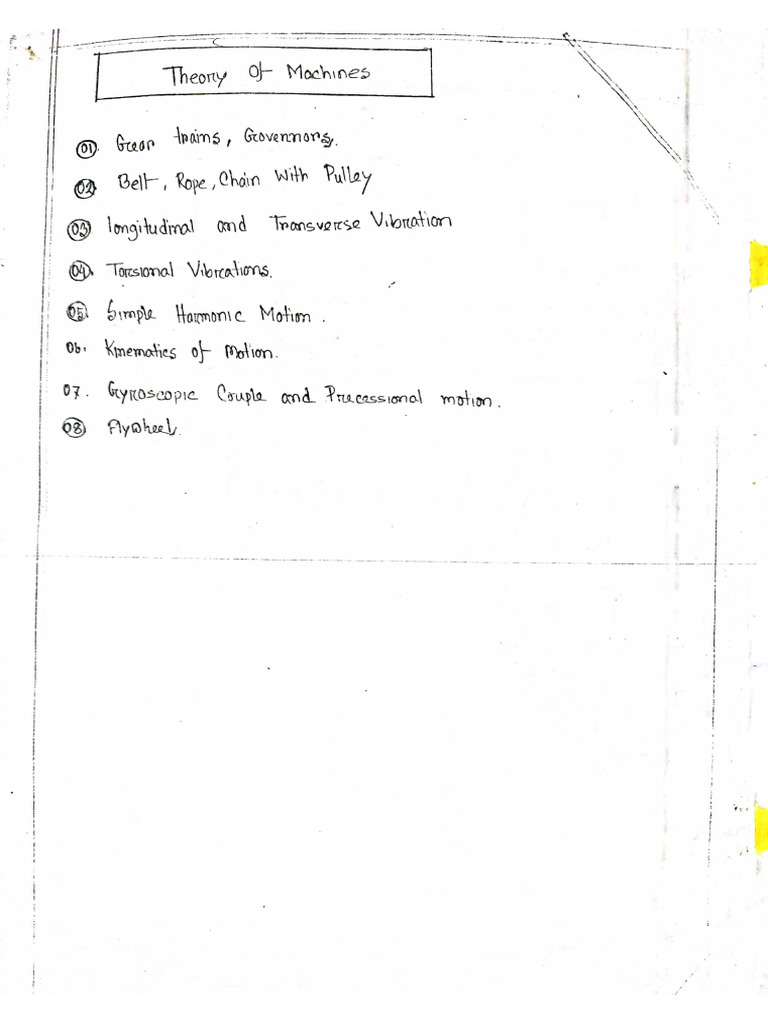 Theory Of Machines
01. Gear trains, Governors.
02. Belt, Rope, Chain With Pulley
03 longitudinal and Transverse Vibration
04. Torsional Vibrations.
05. Simple Harmonic Motion.
06. Kinematics of Motion.
07. Gyroscopic Couple and Precessional motion.
08 Flywheel.